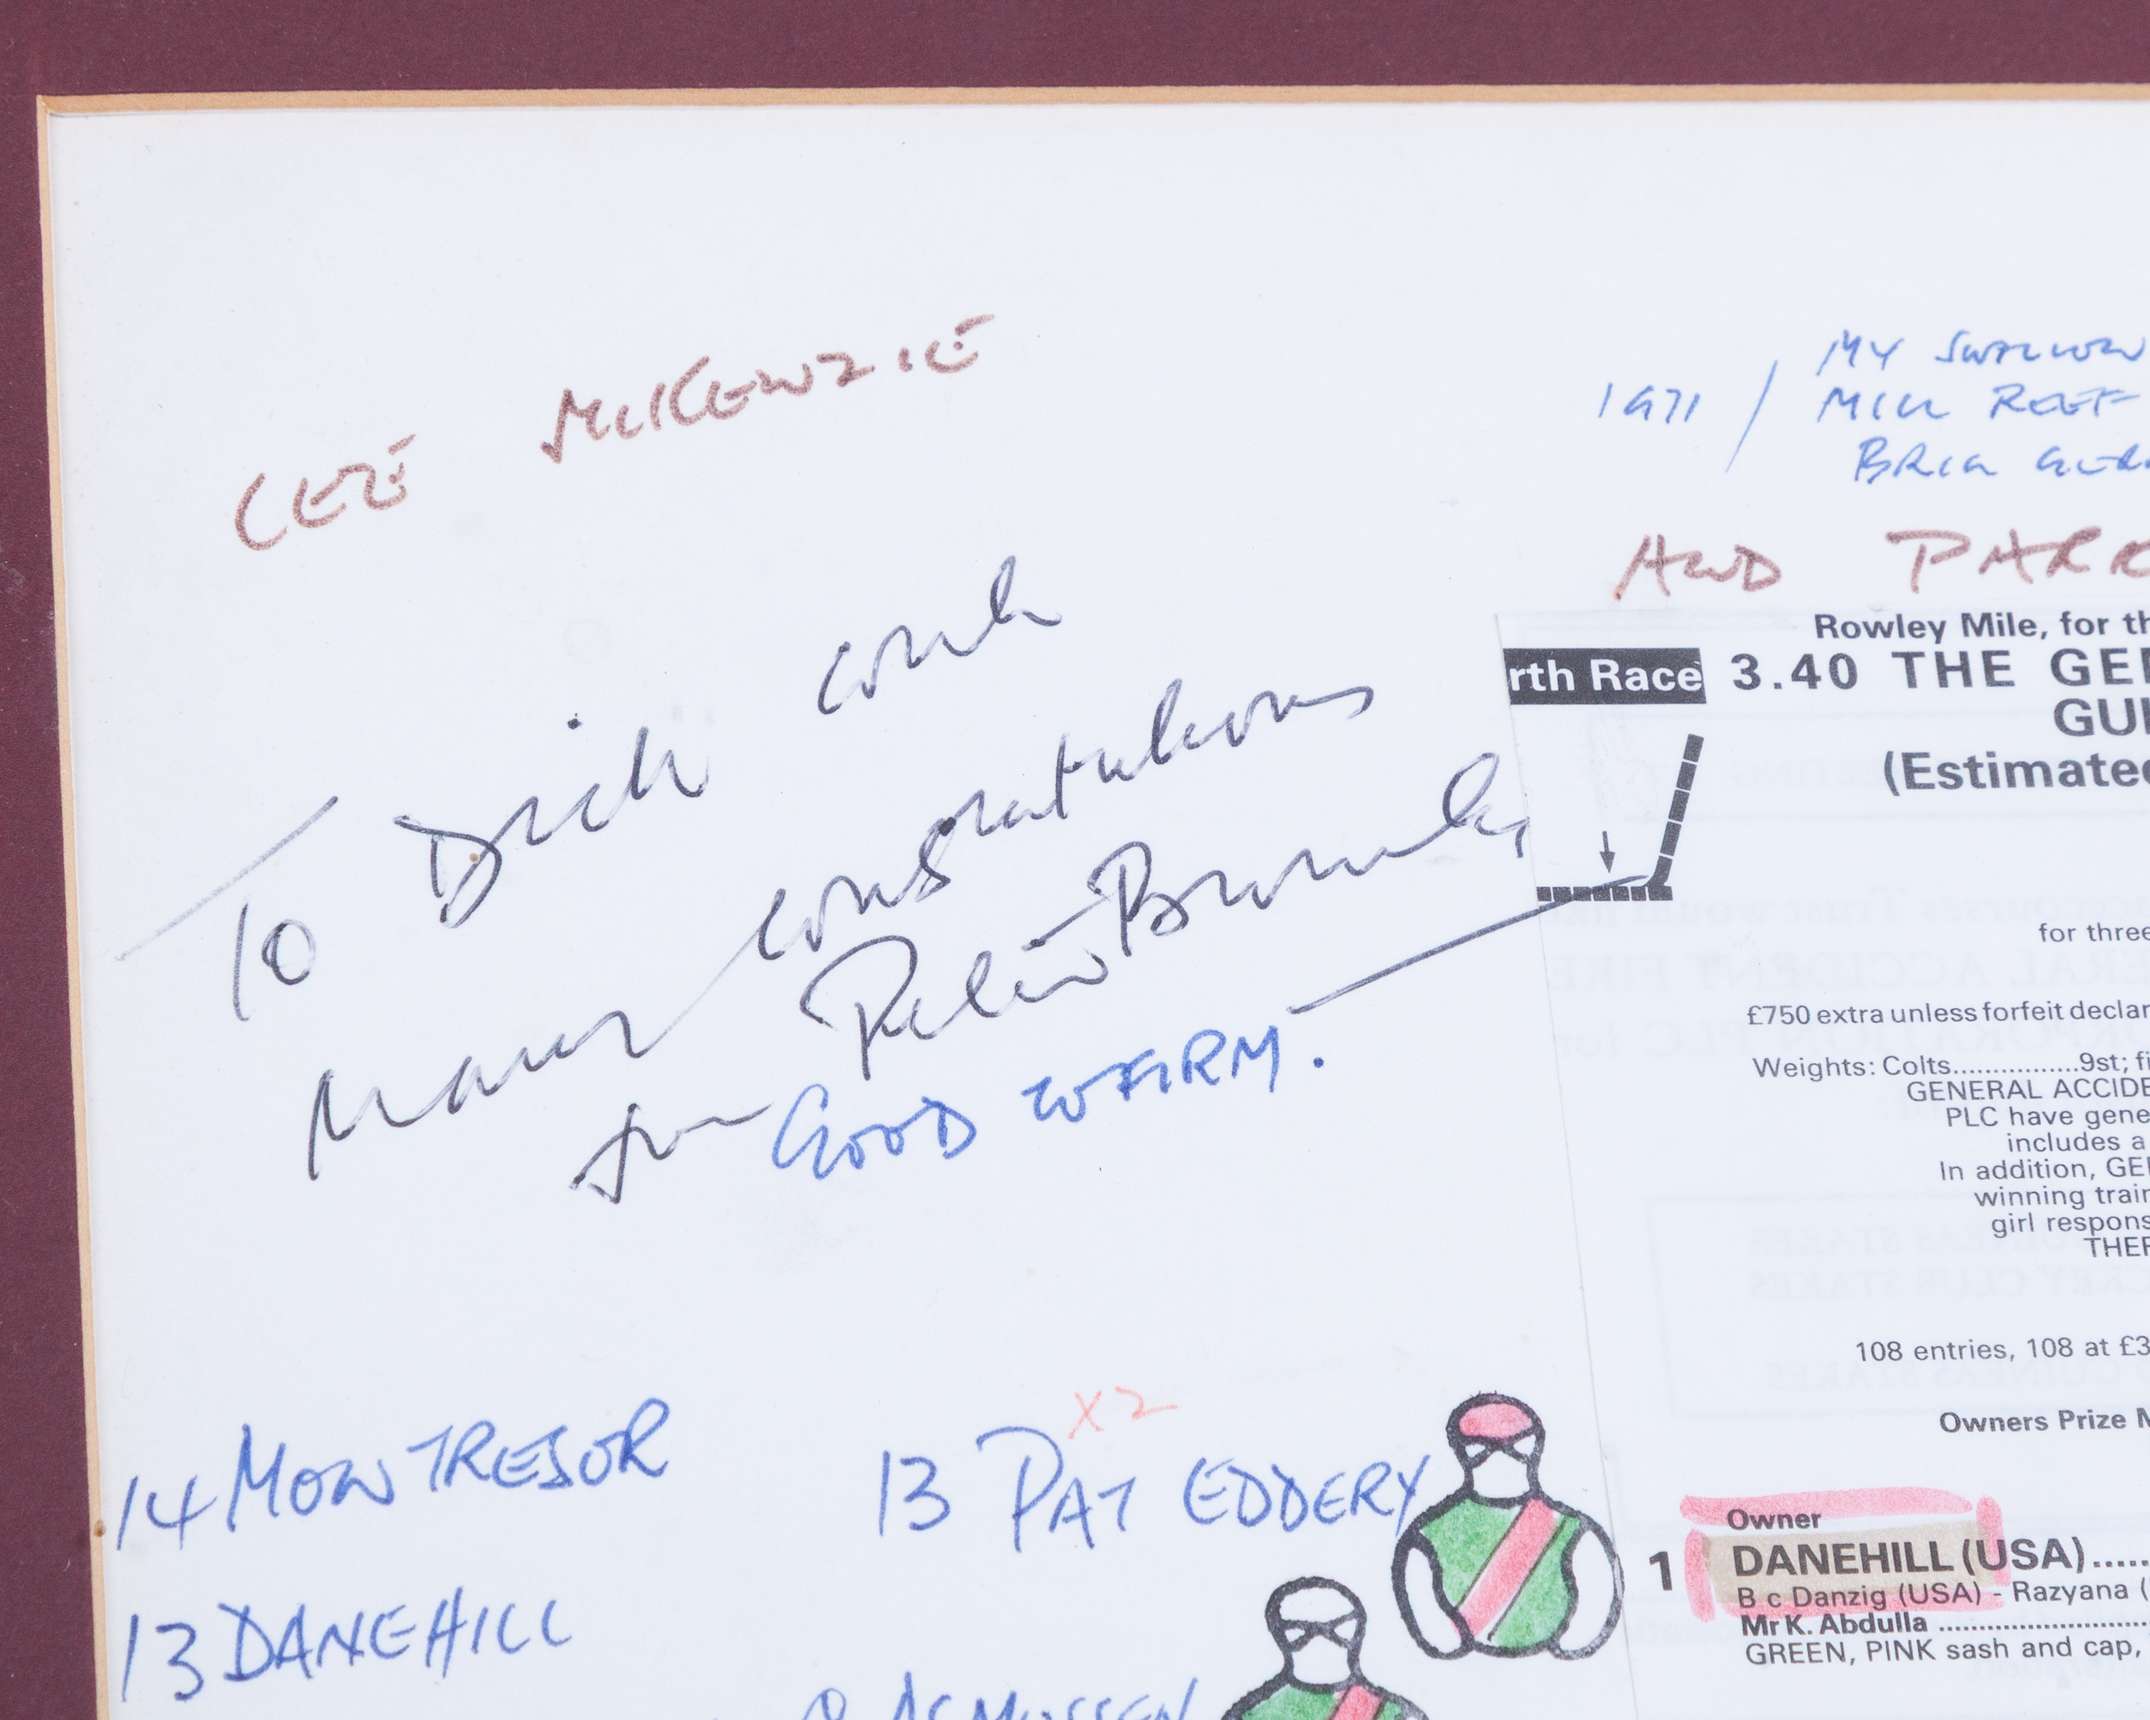 LEE McKENZIE
1971 / MY SWALLOW
MILL REEF
BRIG GER
AND PARR
To Dick with
Many congratulations
from Peter Bromley
GOOD TO FIRM.
Rowley Mile, for th
rth Race 3.40 THE GE
GUI
(Estimated
for three
£750 extra unless forfeit declar
Weights: Colts................9st; fi
GENERAL ACCIDE
PLC have gene
includes a
In addition, GE
winning train
girl respons
THER
108 entries, 108 at £3
Owners Prize M
14 MONTRESOR
X2
13 PAT EDDERY
13 DANEHILL
ASMUSSEN
Owner
1 DANEHILL (USA).....
B c Danzig (USA) - Razyana (
Mr K. Abdulla ..........................
GREEN, PINK sash and cap,